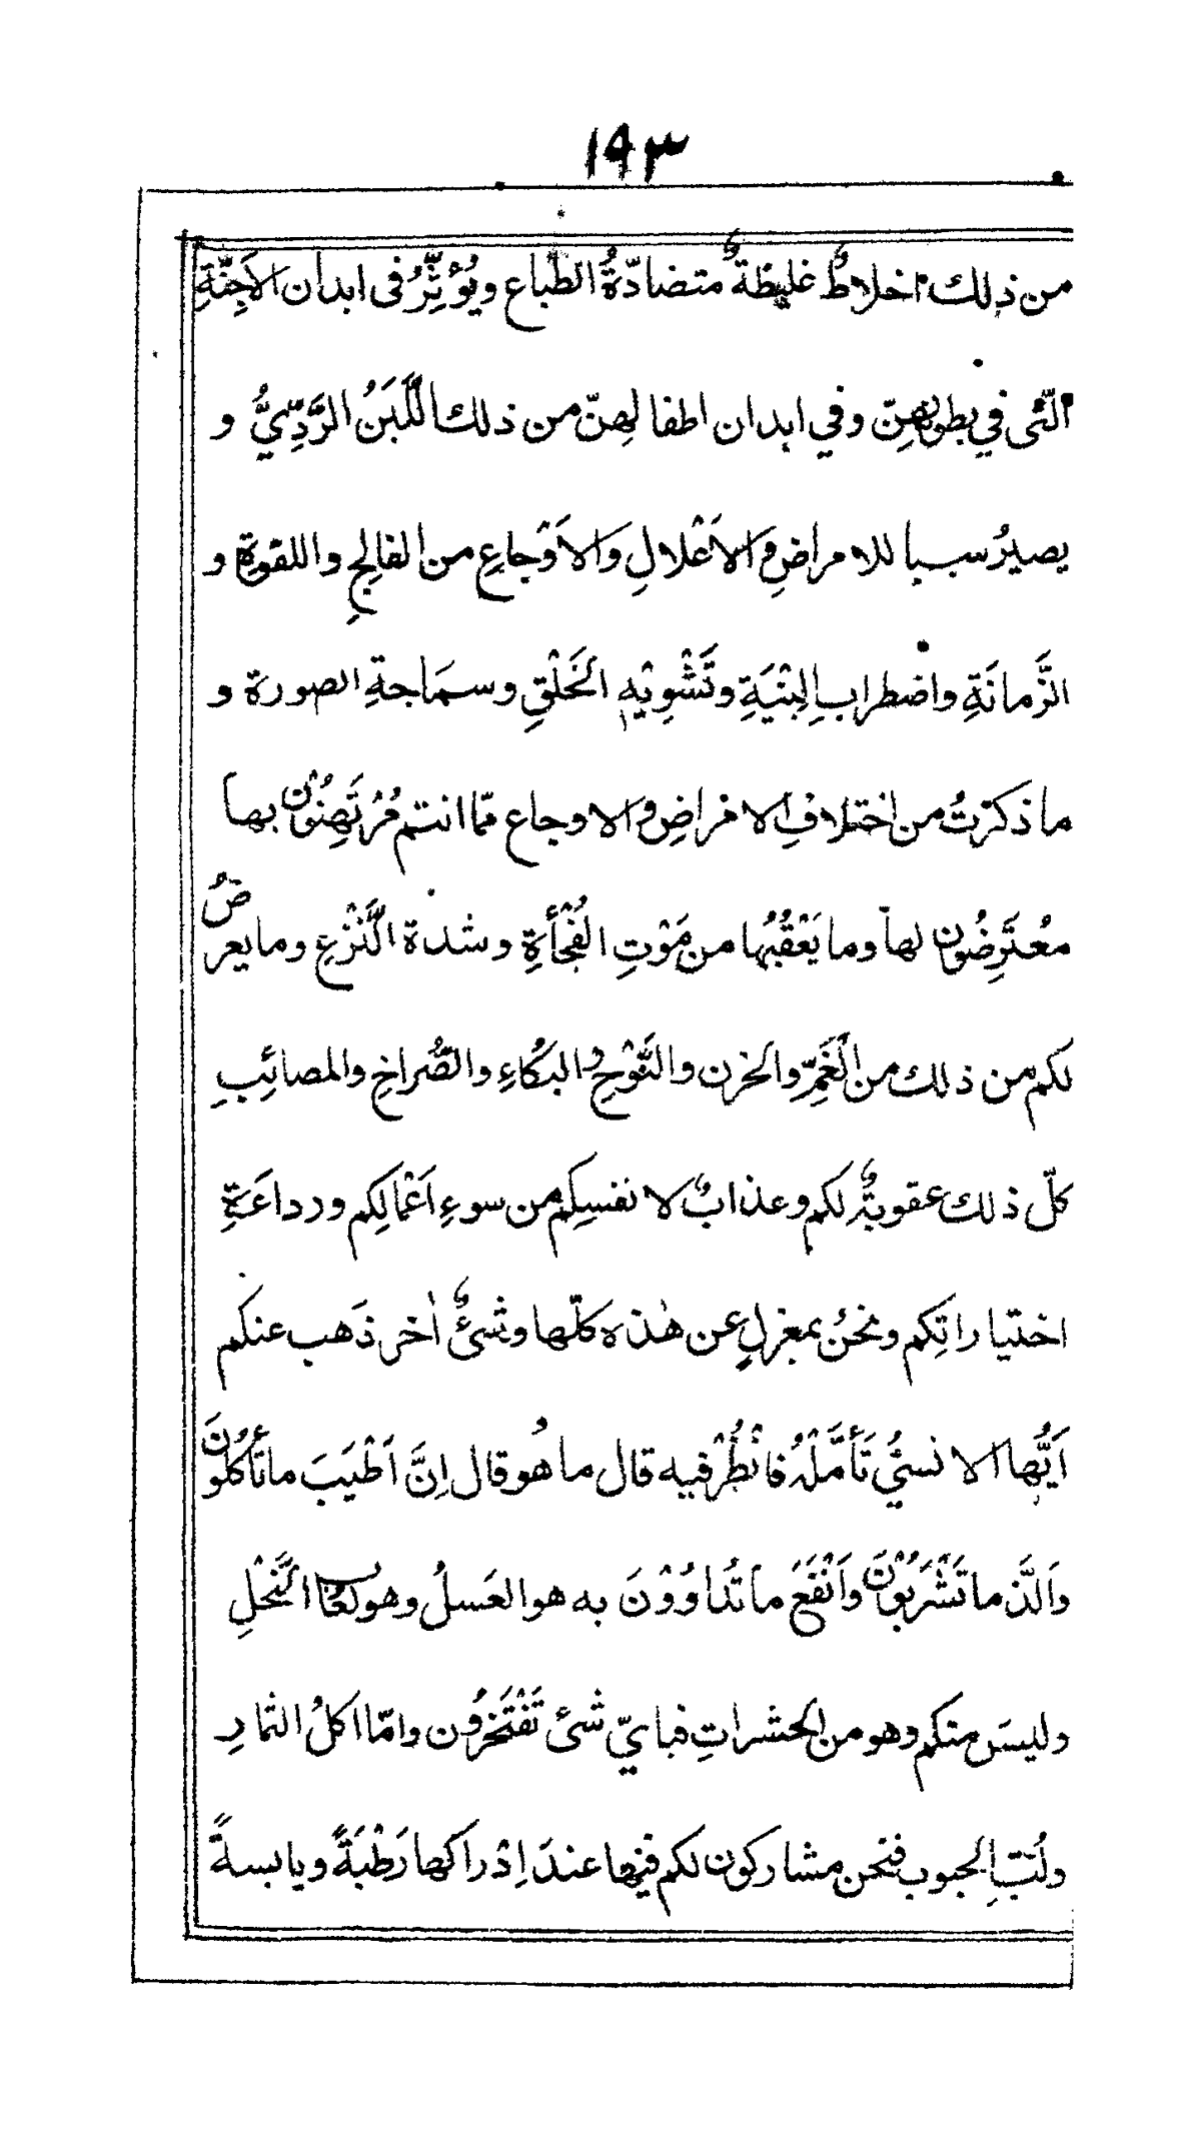 ١٩٣
من ذلك اخلاطٌ غليظةٌ متضادّةُ الطّباع ويُؤثِّرُ فى ابدان الاَجِنَّةِ
الّتى في بطونِهِنّ وفي ابدان اطفالهِنّ من ذلك اللَّبَنُ الرَّدِّيُّ و
يصيرُ سببا للامراضِ والاَعْلالِ والاَوْجاعِ من الفالِجِ واللقوةِ و
الزَّمانَةِ واضطرابِ البِنْيَةِ وتَشْوِيْهِ الخَلْقِ وسمَاجةِ الصورة و
ما ذكرْتُ من اختلافِ الامراضِ والاوجاع ممّا انتم مُرْتَهِنُوْن بها
مُعْتَرِضُون لها وما يَعْقُبُها من مَوْتِ الفُجْأَةِ وشدة النَّزْعِ وما يعرضُ
لكم من ذلك من الغَمِّ والحزن والنَّوْحِ والبُكاءِ والصُّراخِ والمصائِبِ
كلّ ذلك عقوبةٌ لكم وعذابٌ لانفسِكم من سوءِ اَعْمالِكم ورداءَةِ
اختياراتِكم ونحنُ بمعزلٍ عن هٰذه كلّها وشئٌ اٰخر ذَهب عنكم
اَيُّها الانسيُّ تَأَمَّلْهُ فانْظُرْ فيه قال ما هُو قال اِنَّ اَطْيَبَ ما تأكُلُونَ
واَلَذَّ ما تَشْرَبُوْنَ واَنْفَعَ ما تُداوُوْنَ به هو العَسلُ وهو لُعابُ النَّحْلِ
وليسَ منكم وهو من الحشراتِ فبايّ شئ تَفْتَخِرُون وامّا اكلُ الثمارِ
ولُبِّ الحبوب فنحن مشاركون لكم فيها عندَ اِدْراكها رَطْبَةً ويابسةً